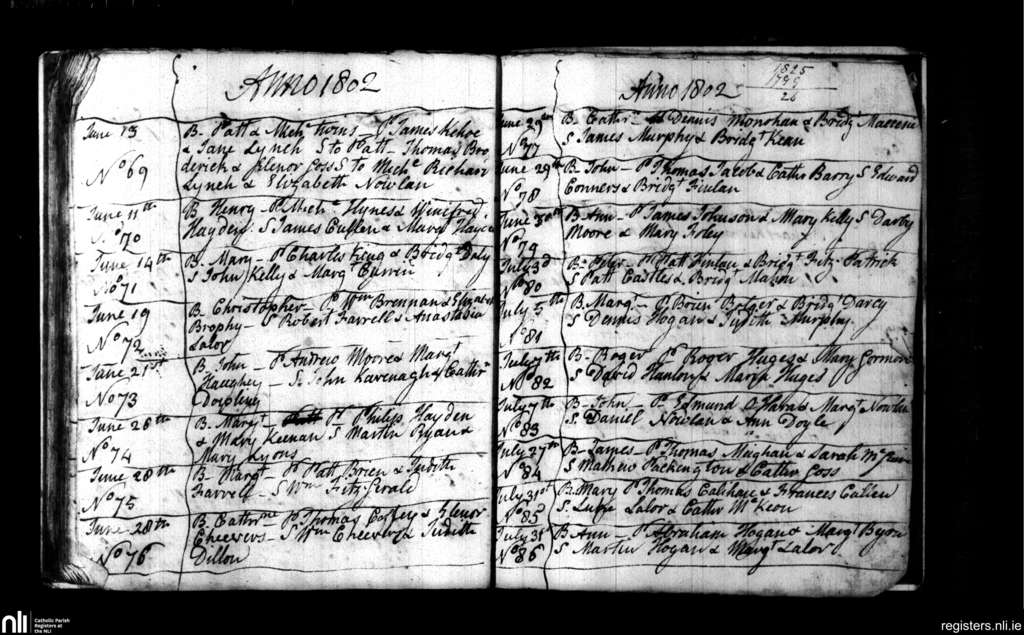 Anno 1802
June 13
No 69
B- Patt & Michl twins - Pt James Kehoe
& Jane Lynch S to Patt - Thomas Bro
derick & Elenor Goss S to Michl Richard
Lynch & Elizabeth Nowlan
June 11th
No 70
B Henry - Pt Michl Hynes & Winifred
Hayden. S James Cullen & Mary Hayes
June 14th
No 71
B. Mary - Pt Charles King & Bridgt Daly
S John Kelly & Margt Currin
June 19
No 72
B Christopher - Pt Wm Brennan & Elizabeth
Brophy - S Robert Farrell & Anastatia
Lalor
June 21st
No 73
B John - Pt Andrew Moore & Margt
Haughey - S. John Kavenagh & Cathr
Dowling
June 26th
No 74
B. Margt Pt Philip Hayden
& Mary Keenan S Martin Ryan &
Mary Lyons
June 28th
No 75
B- Margt - Pt Patt Brien & Judith
Farrell - S Wm Fitz Gerald
June 28th
No 76
B. Cathrne - Pt Thomas & Elenor
Cheevers - S Wm Cheevers & Judith
Dillon
Anno 1802
1825
26
June 29th
No 77
B Cathr - Dennis Monohan & Bridgt
S James Murphy & Bridgt Kean
June 29th
No 78
B- John - Pt Thomas Jacob & Cathr Barry S Edward
Conners & Bridgt Finlan
June 30th
No 79
B Ann - Pt James Johnson & Mary Kelly S Darby
Moore & Mary Foley
July 3d
No 80
B- Peter - Pt Patt Finlan & Bridgt Fitz Patrick
S Patt Eastles & Bridgt Mahon
July 5th
No 81
B. Margt - Pt Brien Bolger & Bridgt Darcy
S Dennis Hogan & Judith Murphy
July 7th
No 82
B- Roger Pt Roger Huges & Mary Gorman
S David Hanlon & Maria Huges
July 7th
No 83
B- John - Pt Edmund O Hara & Margt Nowlan
S. Daniel Nowlan & Ann Doyle
July 27th
No 84
B- James - Pt Thomas Mughan & Sarah
S Mathew Packington & Cathr Goss
July 31st
No 85
B. Mary Pt Thomas & Frances Cullen
S. Luke Lalor & Cathr McKeon
July 31st
No 86
B Ann - Pt Abraham Hogan & Margt Byrn
S Martin Hogan & Margt Lalor
nli
Catholic Parish
Registers at
the NLI
registers.nli.ie